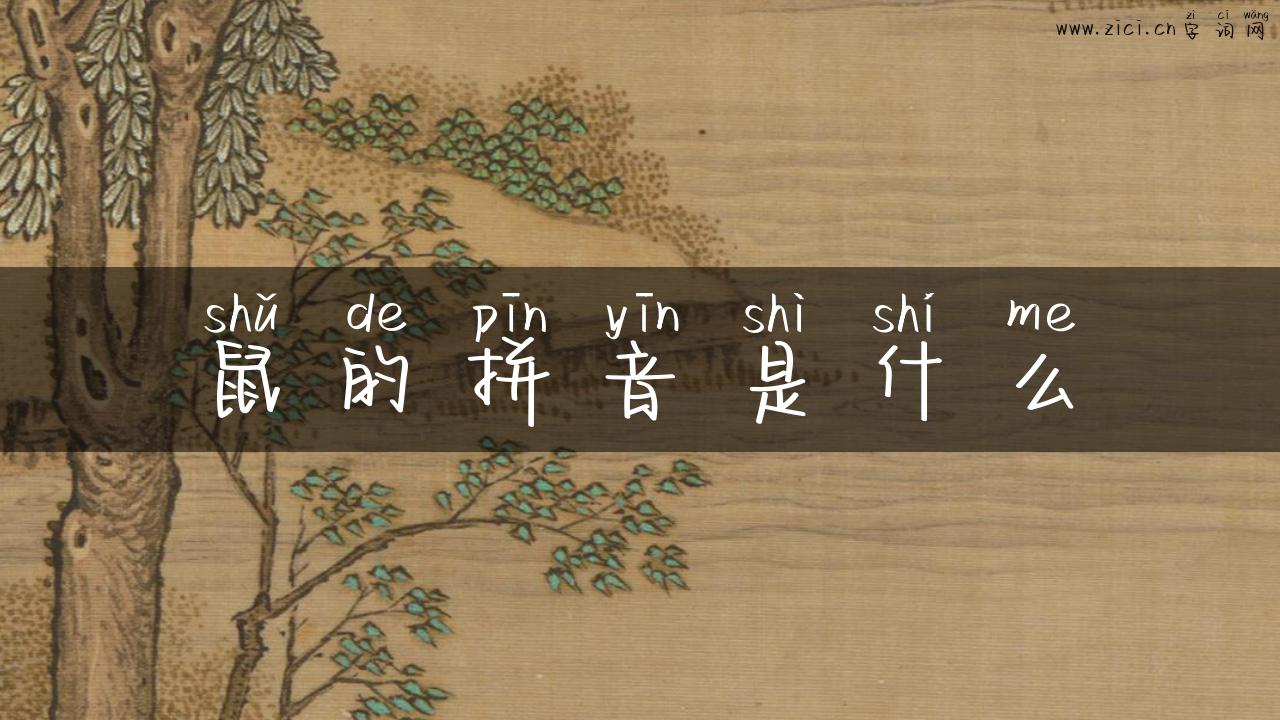 zì cí wǎng
www.zici.cn 字词网
shǔ de pīn yīn shì shí me
鼠的拼音是什么